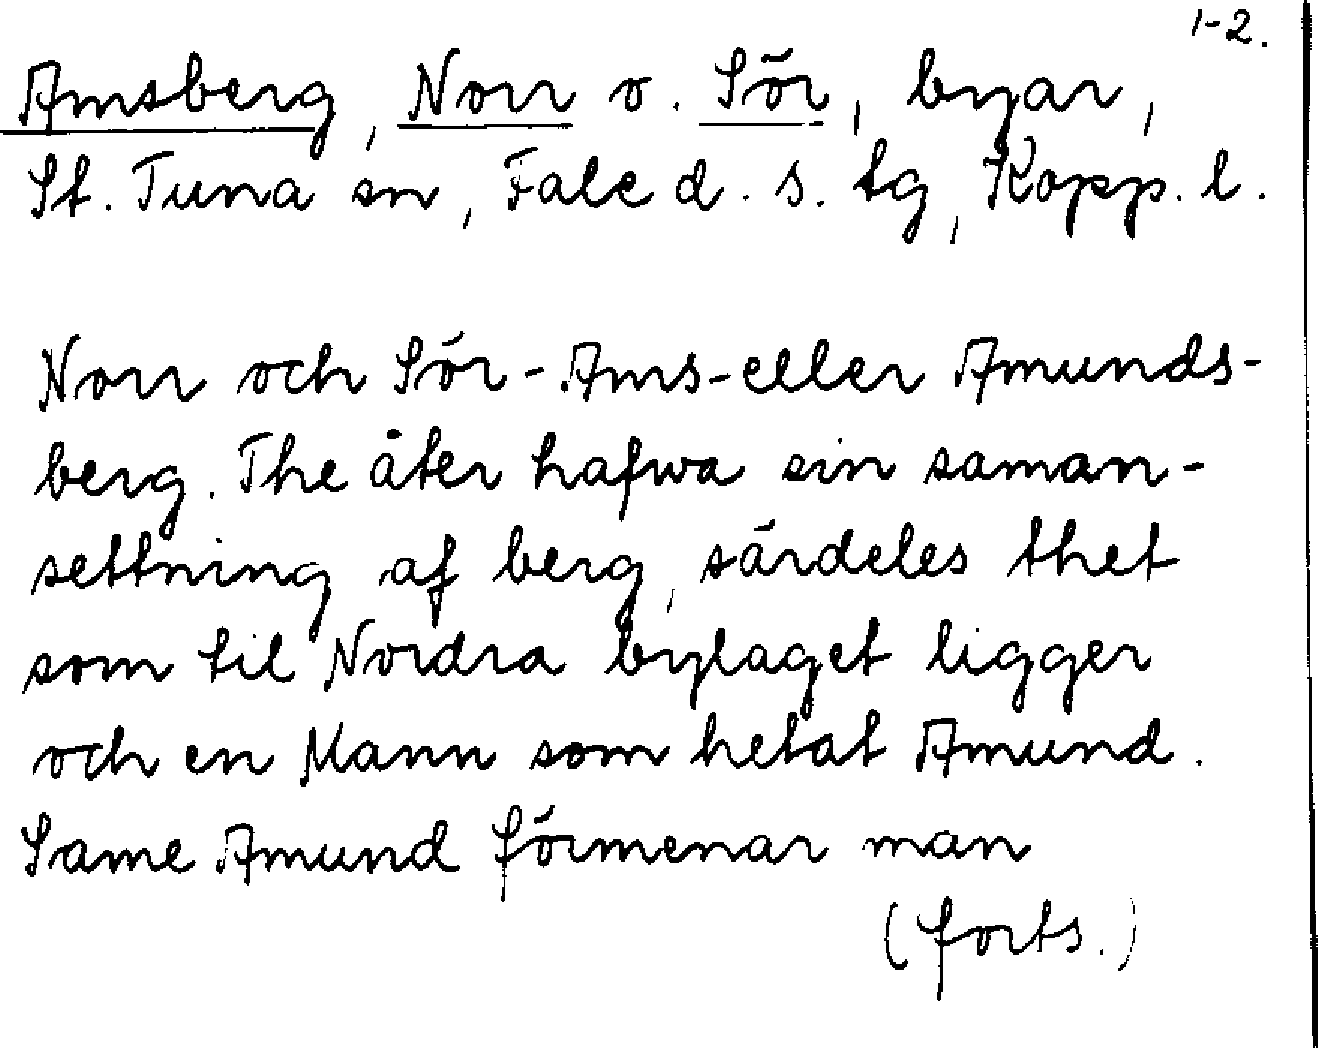 1-2.
Amsberg, Norr o. Sör, byar,
St. Tuna sn, Falu d. s. tg, Kopp. l.
Norr och Sör-Ams-eller Amunds-
berg. The åter hafwa sin saman-
settning af berg, särdeles thet
som til Nordra bylaget ligger
och en Mann som hetat Amund.
Same Amund förmenar man
(forts.)